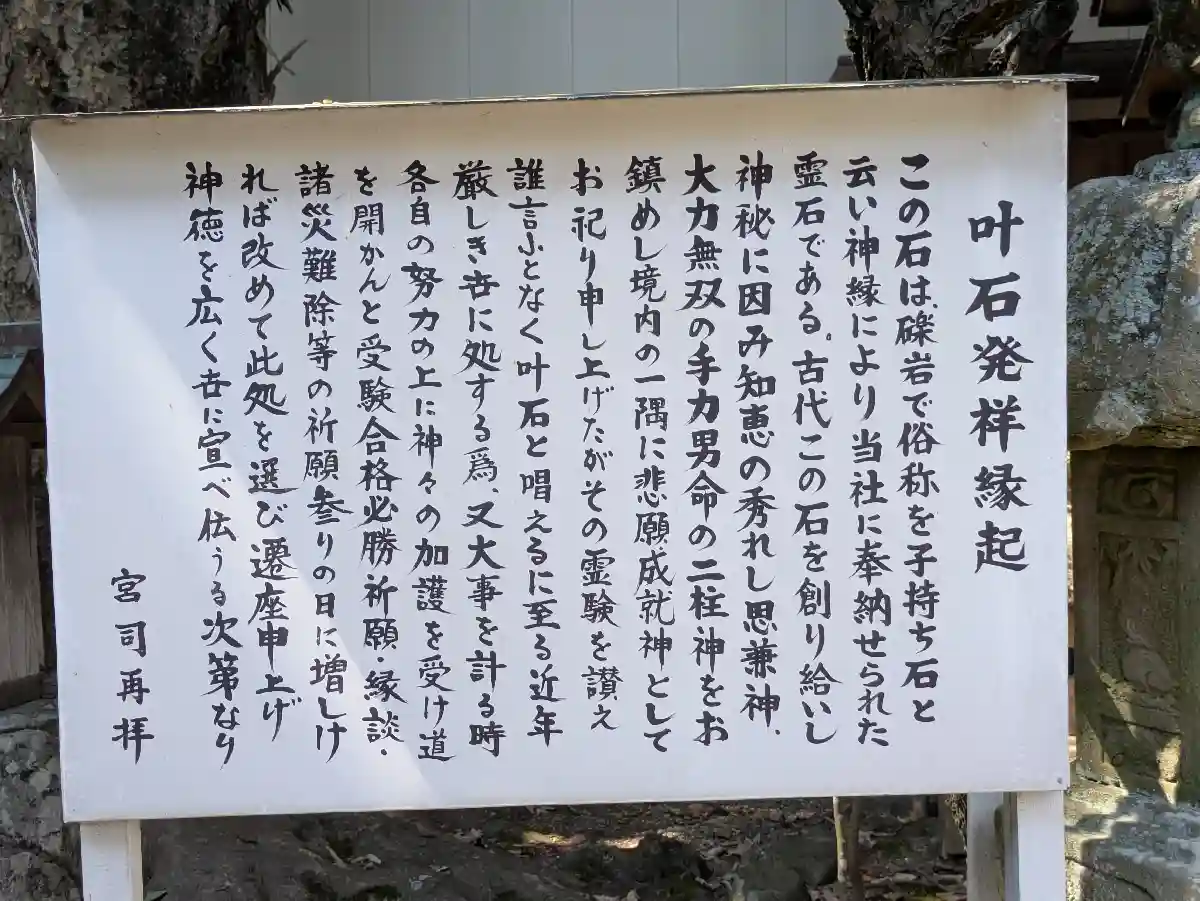 叶石発祥縁起
この石は、礫岩で俗称を子持ち石と
云い神縁により当社に奉納せられた
霊石である。古代この石を創り給いし
神秘に因み知恵の秀れし思兼神、
大力無双の手力男命の二柱神をお
鎮めし境内の一隅に悲願成就神として
お祀り申し上げたがその霊験を讃え
誰言ふとなく叶石と唱えるに至る近年
厳しき世に処する爲、又大事を計る時
各自の努力の上に神々の加護を受け道
を開かんと受験合格必勝祈願・縁談・
諸災難除等の祈願参りの日に増しけ
れば改めて此処を選び遷座申上げ
神徳を広く世に宣べ伝うる次第なり
宮司再拝